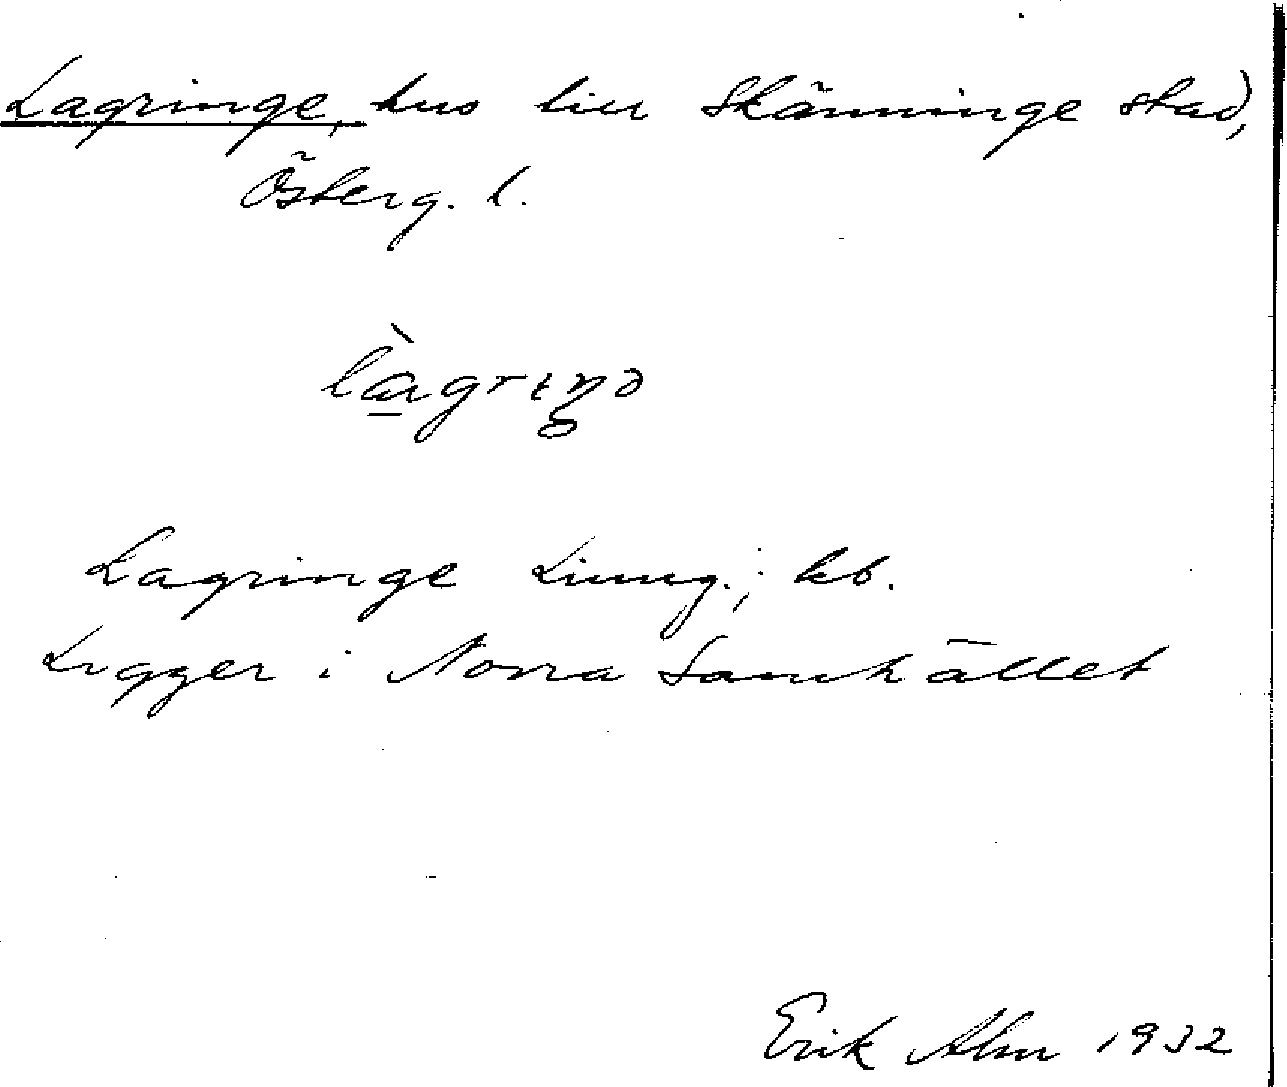 Lagringe, hus till Skänninge stad,
Österg. l.
Lagringe Ljung.; kb.
Ligger i Norra Samhället
Erik Alm 1932